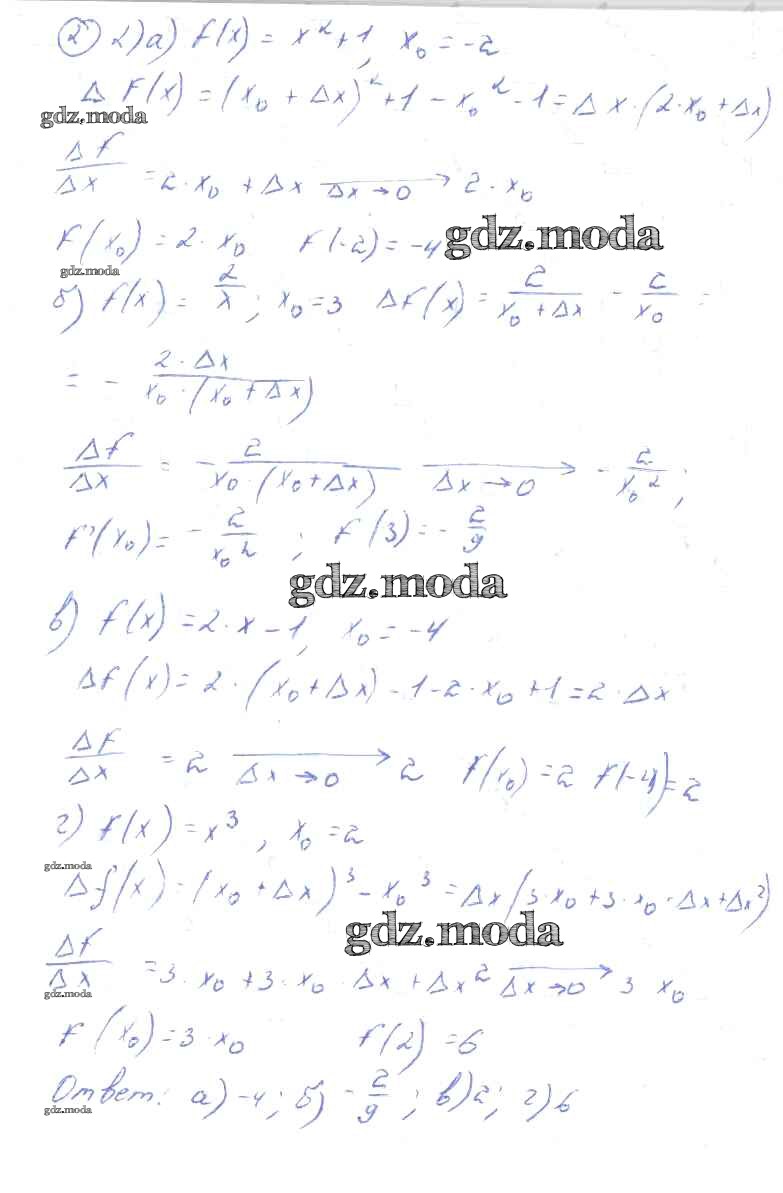 ② 2) а) f(x) = x² + 1, x₀ = -2
Δ f(x) = (x₀ + Δx)² + 1 - x₀² - 1 = Δx · (2 · x₀ + Δx)
gdz.moda
Δf/Δx = 2 · x₀ + Δx →(Δx → 0) 2 · x₀
f(x₀) = 2 · x₀ f(-2) = -4
gdz.moda
gdz.moda
б) f(x) = 2/x; x₀ = 3 Δf(x) = 2/(x₀ + Δx) - 2/x₀ =
= - (2 · Δx)/(x₀ · (x₀ + Δx))
Δf/Δx = - 2/(x₀ · (x₀ + Δx)) →(Δx → 0) - 2/x₀²;
f'(x₀) = - 2/x₀²; f(3) = - 2/9
gdz.moda
в) f(x) = 2 · x - 1, x₀ = -4
Δf(x) = 2 · (x₀ + Δx) - 1 - 2 · x₀ + 1 = 2 · Δx
Δf/Δx = 2 →(Δx → 0) 2 f(x₀) = 2 f(-4) = 2
г) f(x) = x³, x₀ = 2
gdz.moda
Δf(x) = (x₀ + Δx)³ - x₀³ = Δx (3 · x₀ + 3 · x₀ · Δx + Δx²)
gdz.moda
Δf/Δx = 3 · x₀ + 3 · x₀ · Δx + Δx² →(Δx → 0) 3 x₀
gdz.moda
f(x₀) = 3 · x₀ f(2) = 6
Ответ: а) -4; б) - 2/9; в) 2; г) 6
gdz.moda